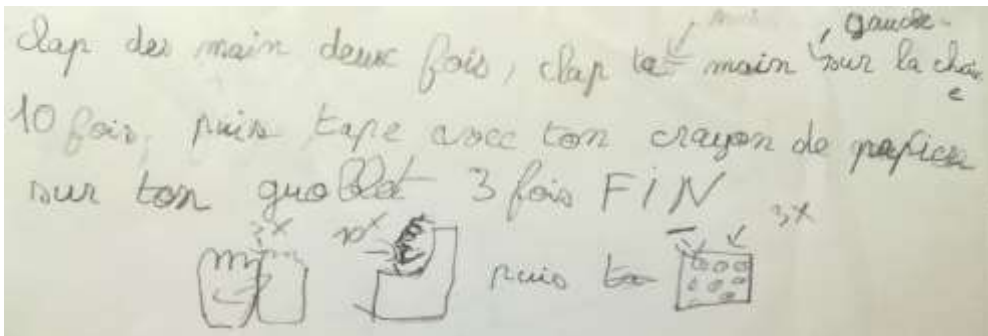 gauche
clap des main deux fois, clap ta main sur la chaise
10 fois, puis tape avec ton crayon de papier
sur ton quoblet 3 fois FIN
10x 3x
puis ta